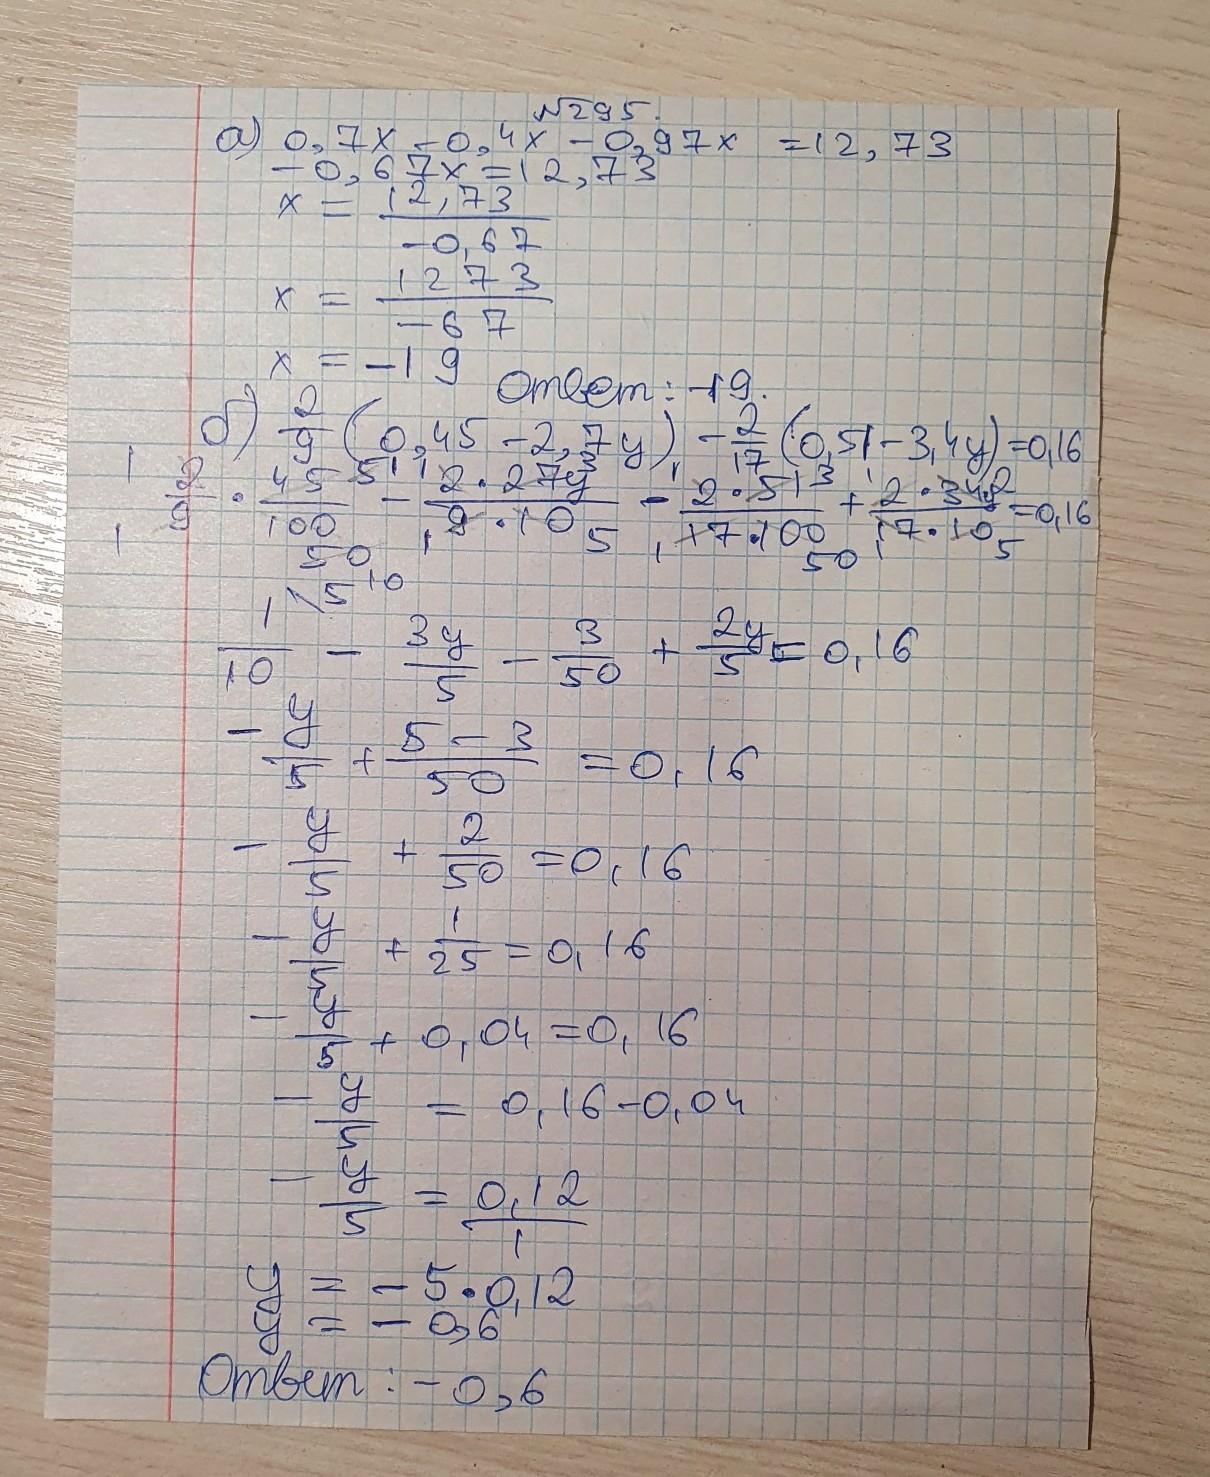 №295.
а) 0,7x - 0,4x - 0,97x = 12,73
-0,67x = 12,73
x = 12,73 / -0,67
x = 1273 / -67
x = -19
Ответ: -19.
б) 2/9 (0,45 - 2,7y) - 2/17 (0,51 - 3,4y) = 0,16
2/9 · 45/100 - 2·27y/9·10 - 2·51/17·100 + 2·34y/17·10 = 0,16
1/10 - 3y/5 - 3/50 + 2y/5 = 0,16
- y/5 + 5-3/50 = 0,16
- y/5 + 2/50 = 0,16
- y/5 + 1/25 = 0,16
- y/5 + 0,04 = 0,16
- y/5 = 0,16 - 0,04
- y/5 = 0,12/1
y = -5·0,12
y = -0,6
Ответ: -0,6